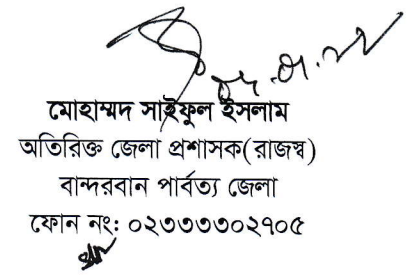 মোহাম্মদ সাইফুল ইসলাম
অতিরিক্ত জেলা প্রশাসক(রাজস্ব)
বান্দরবান পার্বত্য জেলা
ফোন নং: ০২৩৩৩৩০২৭০৫